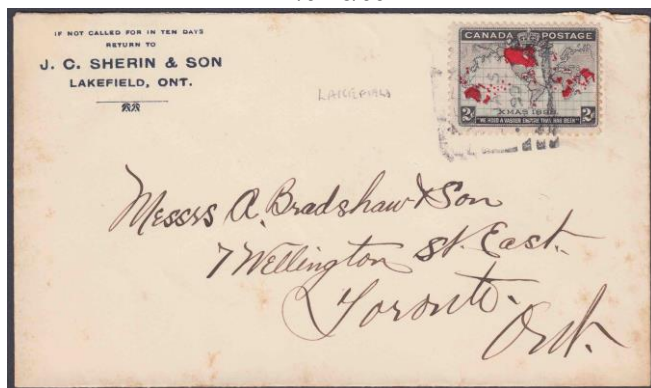 IF NOT CALLED FOR IN TEN DAYS
RETURN TO
J. C. SHERIN & SON
LAKEFIELD, ONT.
LAKEFIELD
CANADA POSTAGE
XMAS 1898
2¢ 2¢
"WE HOLD A VASTER EMPIRE THAN HAS BEEN"
Messrs A. Bradshaw & Son
7 Wellington St. East.
Toronto.
Ont.